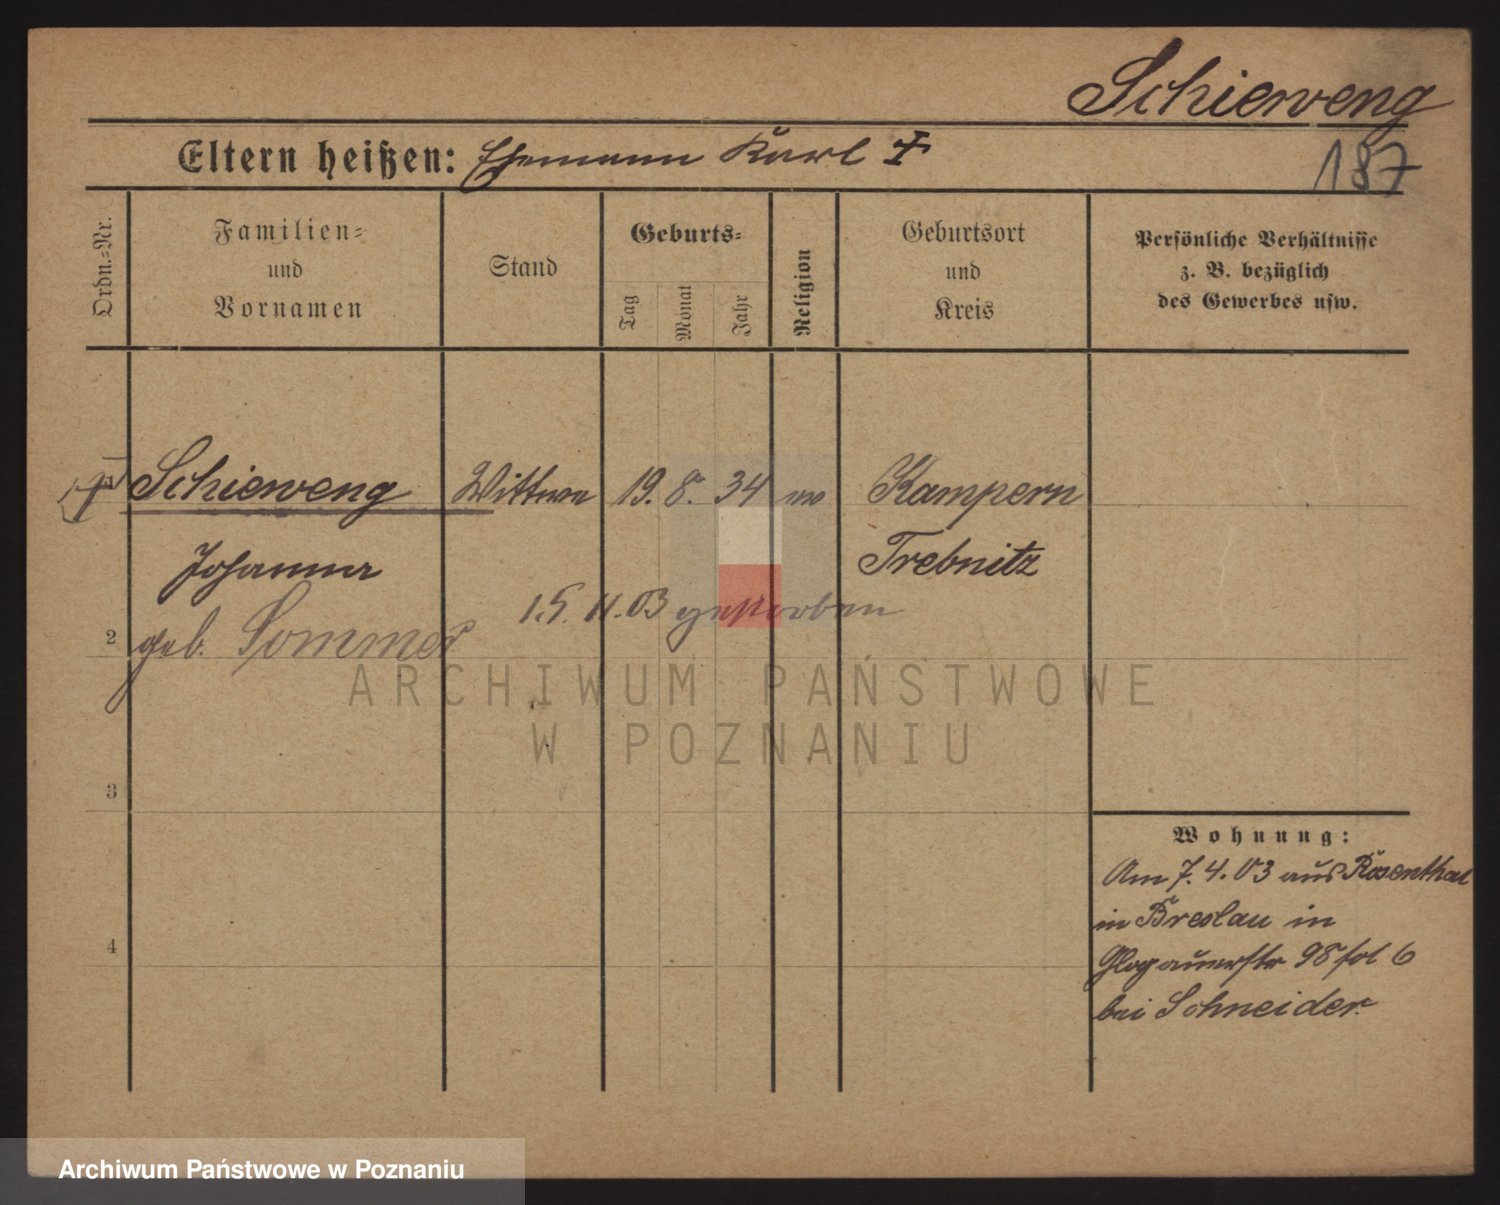 Schieweng
Eltern heißen: Ehemann Karl
187
Ordn.-Nr.
Familien-
und
Vornamen
Stand
Geburts-
Tag
Monat
Jahr
Religion
Geburtsort
und
Kreis
Persönliche Verhältnisse
z. B. bezüglich
des Gewerbes usw.
Schieweng Wittwe 19. 8. 34 ev Kampern
Johanna Trebnitz
15. 11. 03 gestorben
2 geb. Sommer
ARCHIWUM PAŃSTWOWE
W POZNANIU
3
4
Wohnung:
Am 7. 4. 03 aus Rosenthal
in Breslau in
Glogauerstr 98 fol 6
bei Schneider
Archiwum Państwowe w Poznaniu